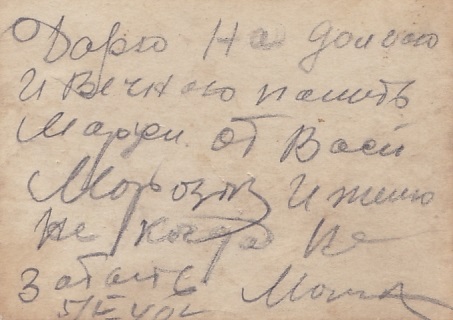 Дарю На долгою
И Вечною память
Марфи от Васи
Морозов И жину
Не когда Не
Забать